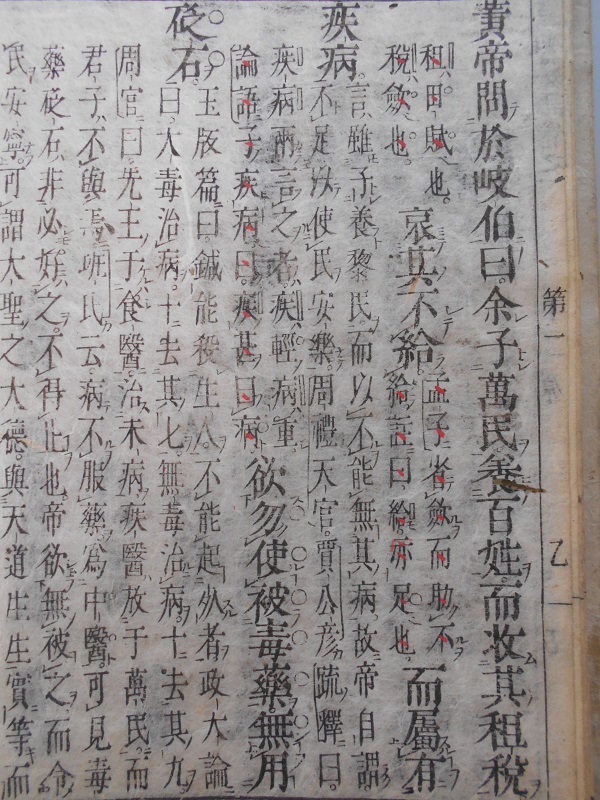 第一
乙一
黃帝問於岐伯曰余子萬民養百姓而收其租稅
租田賦也。
稅斂也。
哀其不給
孟子省斂而助不
給註曰給亦足也。
而屬有
疾病。
言雖子養黎民而以不能無其病故帝自謂
不足以使民安樂周禮天官賈公彥疏釋曰
疾病兩言之者疾輕病重
論語子疾病曰疾甚曰病
欲勿使被毒藥無用
砭石。
玉版篇曰鍼能殺生人不能起死者政大論
曰大毒治病十去其七無毒治病十去其九
周官曰先王于食醫治未病疾醫放于萬民而
君子不與焉班氏云病不服藥為中醫可見毒
藥砭石非必好之不得止也帝欲無被之而令
民安寧可謂大聖之大德與天道生生實等而